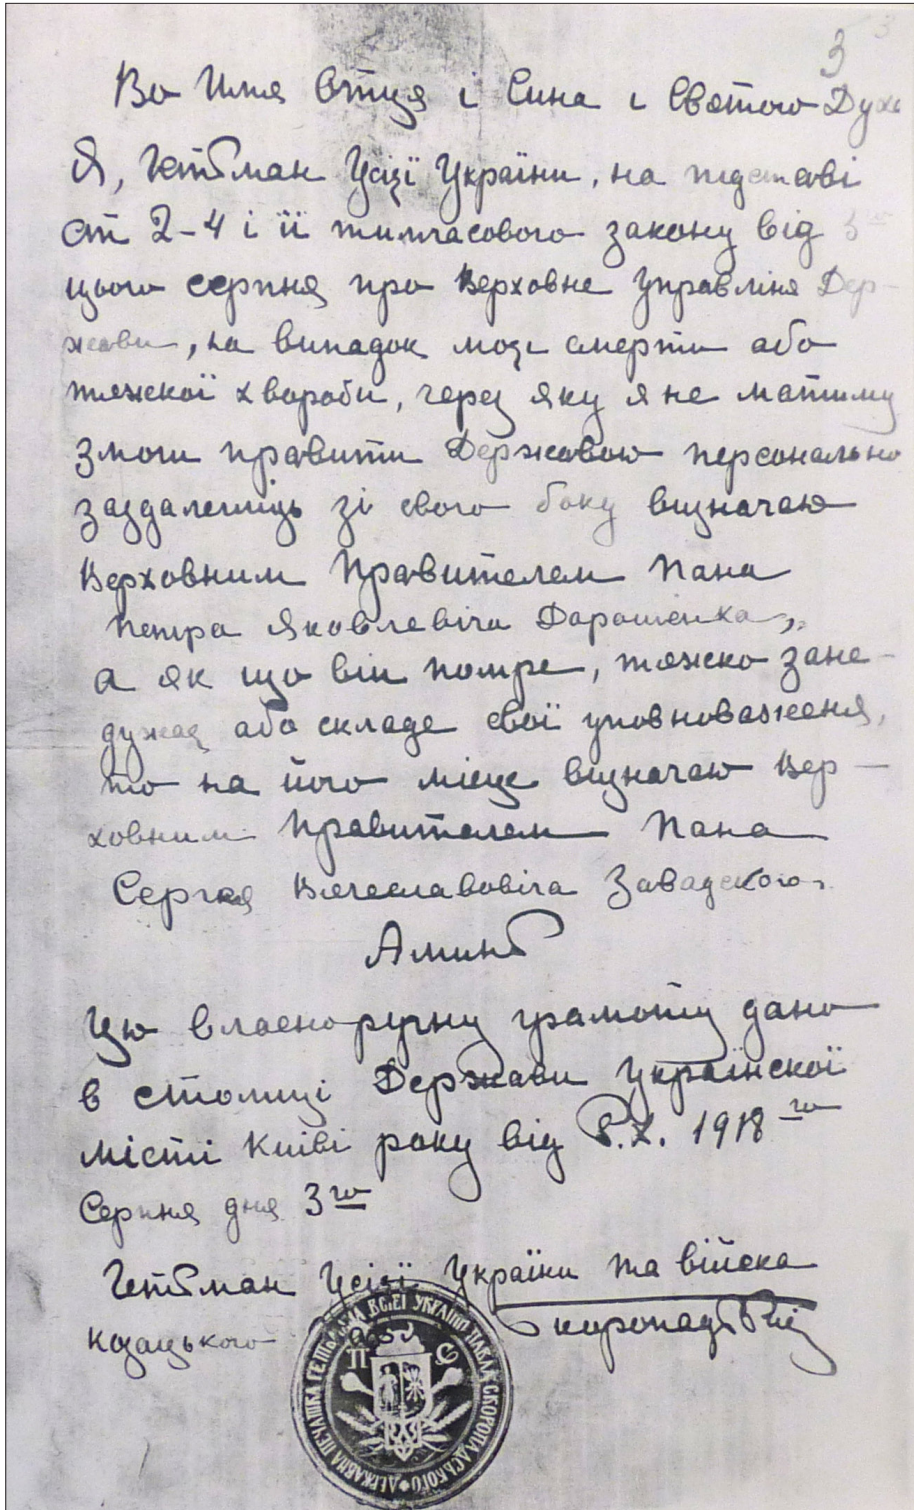 3
Во Имя Отця і Сина і Святого Духа
Я, Гетьман Усієї України, на підставі
ст 2-4 і її тимчасового закону від 3го
цього серпня про Верховне Управліня Дер-
жави, на випадок моєї смерти або
тяжкої хвороби, через яку я не матиму
змоги правити Державою персонально
заздалегідь зі свого боку визначаю
Верховним Правителем Пана
Петра Яковлевіча Дорошенка,
а як що він помре, тяжко зане-
дужає або складе свої уповноваженя,
то на його місце визначаю Вер-
ховним Правителем Пана
Сергея Вячеславовіча Завадского.
Аминь
Цю власноручну грамоту дано
в столиці Держави Української
місті Київі року від Р.Х. 1918го
Серпня дня 3го
Гетьман Усієї України та війска
козацького Скоропадський
ДЕРЖАВНА ПЕЧАТКА ГЕТЬМАНА ВСІЄЇ УКРАЇНИ ПАВЛА СКОРОПАДСЬКОГО
П С